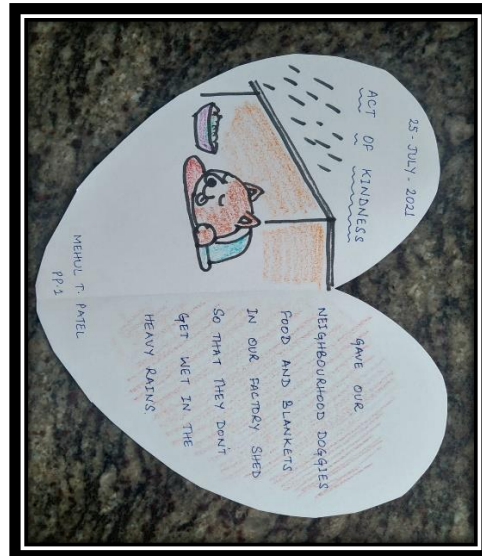 25 - JULY - 2021
ACT OF KINDNESS
GAVE OUR
NEIGHBOURHOOD DOGGIES
FOOD AND BLANKETS
IN OUR FACTORY SHED
SO THAT THEY DON'T
GET WET IN THE
HEAVY RAINS.
MEHUL T. PATEL
PP-1